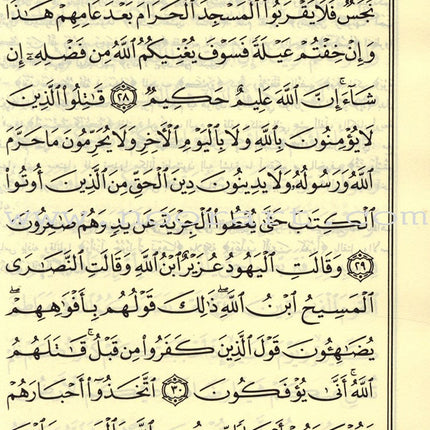 نَجَسٌ فَلَا يَقْرَبُوا۟ ٱلْمَسْجِدَ ٱلْحَرَامَ بَعْدَ عَامِهِمْ هَٰذَا
وَإِنْ خِفْتُمْ عَيْلَةً فَسَوْفَ يُغْنِيكُمُ ٱللَّهُ مِن فَضْلِهِۦٓ إِن
شَآءَ ۚ إِنَّ ٱللَّهَ عَلِيمٌ حَكِيمٌ ٢٨ قَٰتِلُوا۟ ٱلَّذِينَ
لَا يُؤْمِنُونَ بِٱللَّهِ وَلَا بِٱلْيَوْمِ ٱلْءَاخِرِ وَلَا يُحَرِّمُونَ مَا حَرَّمَ
ٱللَّهُ وَرَسُولُهُۥ وَلَا يَدِينُونَ دِينَ ٱلْحَقِّ مِنَ ٱلَّذِينَ أُوتُوا۟
ٱلْكِتَٰبَ حَتَّىٰ يُعْطُوا۟ ٱلْجِزْيَةَ عَن يَدٍ وَهُمْ صَٰغِرُونَ
٢٩ وَقَالَتِ ٱلْيَهُودُ عُزَيْرٌ ٱبْنُ ٱللَّهِ وَقَالَتِ ٱلنَّصَٰرَى
ٱلْمَسِيحُ ٱبْنُ ٱللَّهِ ۖ ذَٰلِكَ قَوْلُهُم بِأَفْوَٰهِهِمْ ۖ
يُضَٰهِـُٔونَ قَوْلَ ٱلَّذِينَ كَفَرُوا۟ مِن قَبْلُ ۚ قَٰتَلَهُمُ
ٱللَّهُ ۚ أَنَّىٰ يُؤْفَكُونَ ٣٠ ٱتَّخَذُوٓا۟ أَحْبَارَهُمْ